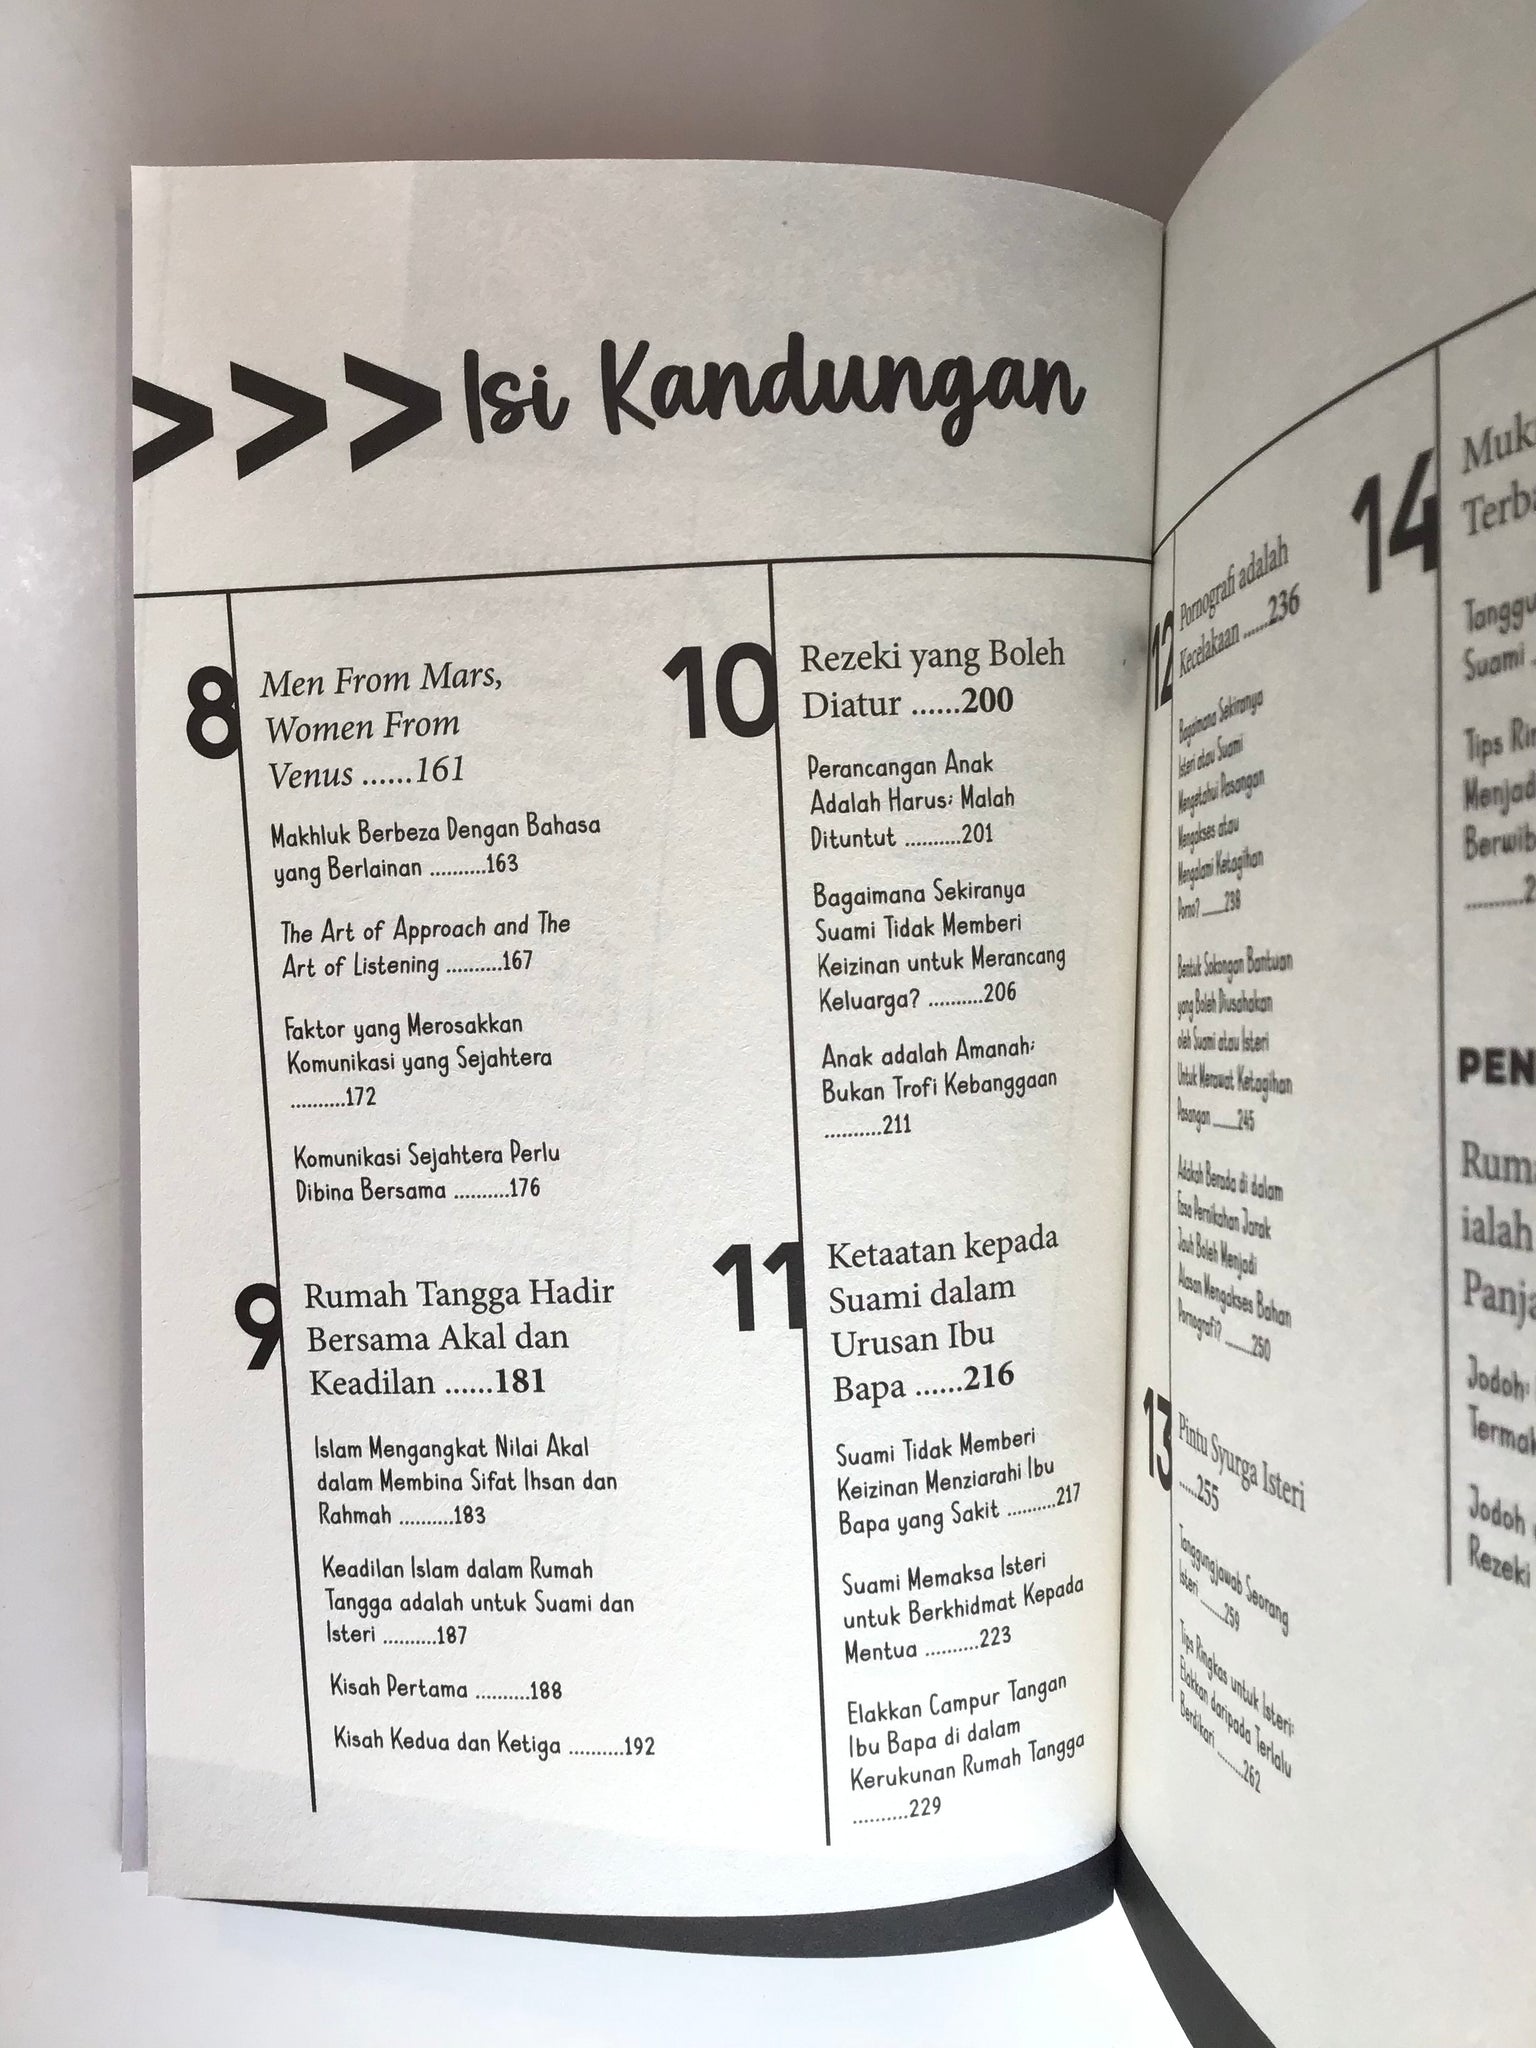 >>> Isi Kandungan
8
Men From Mars,
Women From
Venus ......161
Makhluk Berbeza Dengan Bahasa
yang Berlainan ..........163
The Art of Approach and The
Art of Listening ..........167
Faktor yang Merosakkan
Komunikasi yang Sejahtera
..........172
Komunikasi Sejahtera Perlu
Dibina Bersama ..........176
9
Rumah Tangga Hadir
Bersama Akal dan
Keadilan ......181
Islam Mengangkat Nilai Akal
dalam Membina Sifat Ihsan dan
Rahmah ..........183
Keadilan Islam dalam Rumah
Tangga adalah untuk Suami dan
Isteri ..........187
Kisah Pertama ..........188
Kisah Kedua dan Ketiga ..........192
10
Rezeki yang Boleh
Diatur ......200
Perancangan Anak
Adalah Harus; Malah
Dituntut ..........201
Bagaimana Sekiranya
Suami Tidak Memberi
Keizinan untuk Merancang
Keluarga? ..........206
Anak adalah Amanah;
Bukan Trofi Kebanggaan
..........211
11
Ketaatan kepada
Suami dalam
Urusan Ibu
Bapa ......216
Suami Tidak Memberi
Keizinan Menziarahi Ibu
Bapa yang Sakit ..........217
Suami Memaksa Isteri
untuk Berkhidmat Kepada
Mentua ..........223
Elakkan Campur Tangan
Ibu Bapa di dalam
Kerukunan Rumah Tangga
..........229
12
Pornografi adalah
Kecelakaan ......236
Bagaimana Sekiranya
Isteri atau Suami
Mengetahui Pasangan
Mengakses atau
Mengalami Ketagihan
Porno? ..........238
Bentuk Sokongan Bantuan
yang Boleh Diusahakan
oleh Suami atau Isteri
Untuk Merawat Ketagihan
Pasangan ..........245
Adakah Berada di dalam
Fasa Pernikahan Jarak
Jauh Boleh Menjadi
Alasan Mengakses Bahan
Pornografi? ..........250
13
Pintu Syurga Isteri
......255
Tanggungjawab Seorang
Isteri ..........259
Tips Ringkas untuk Isteri:
Elakkan daripada Terlalu
Berdikari ..........262
14
Suami
Tips
ialah
Jodoh
Jodoh
Rezeki